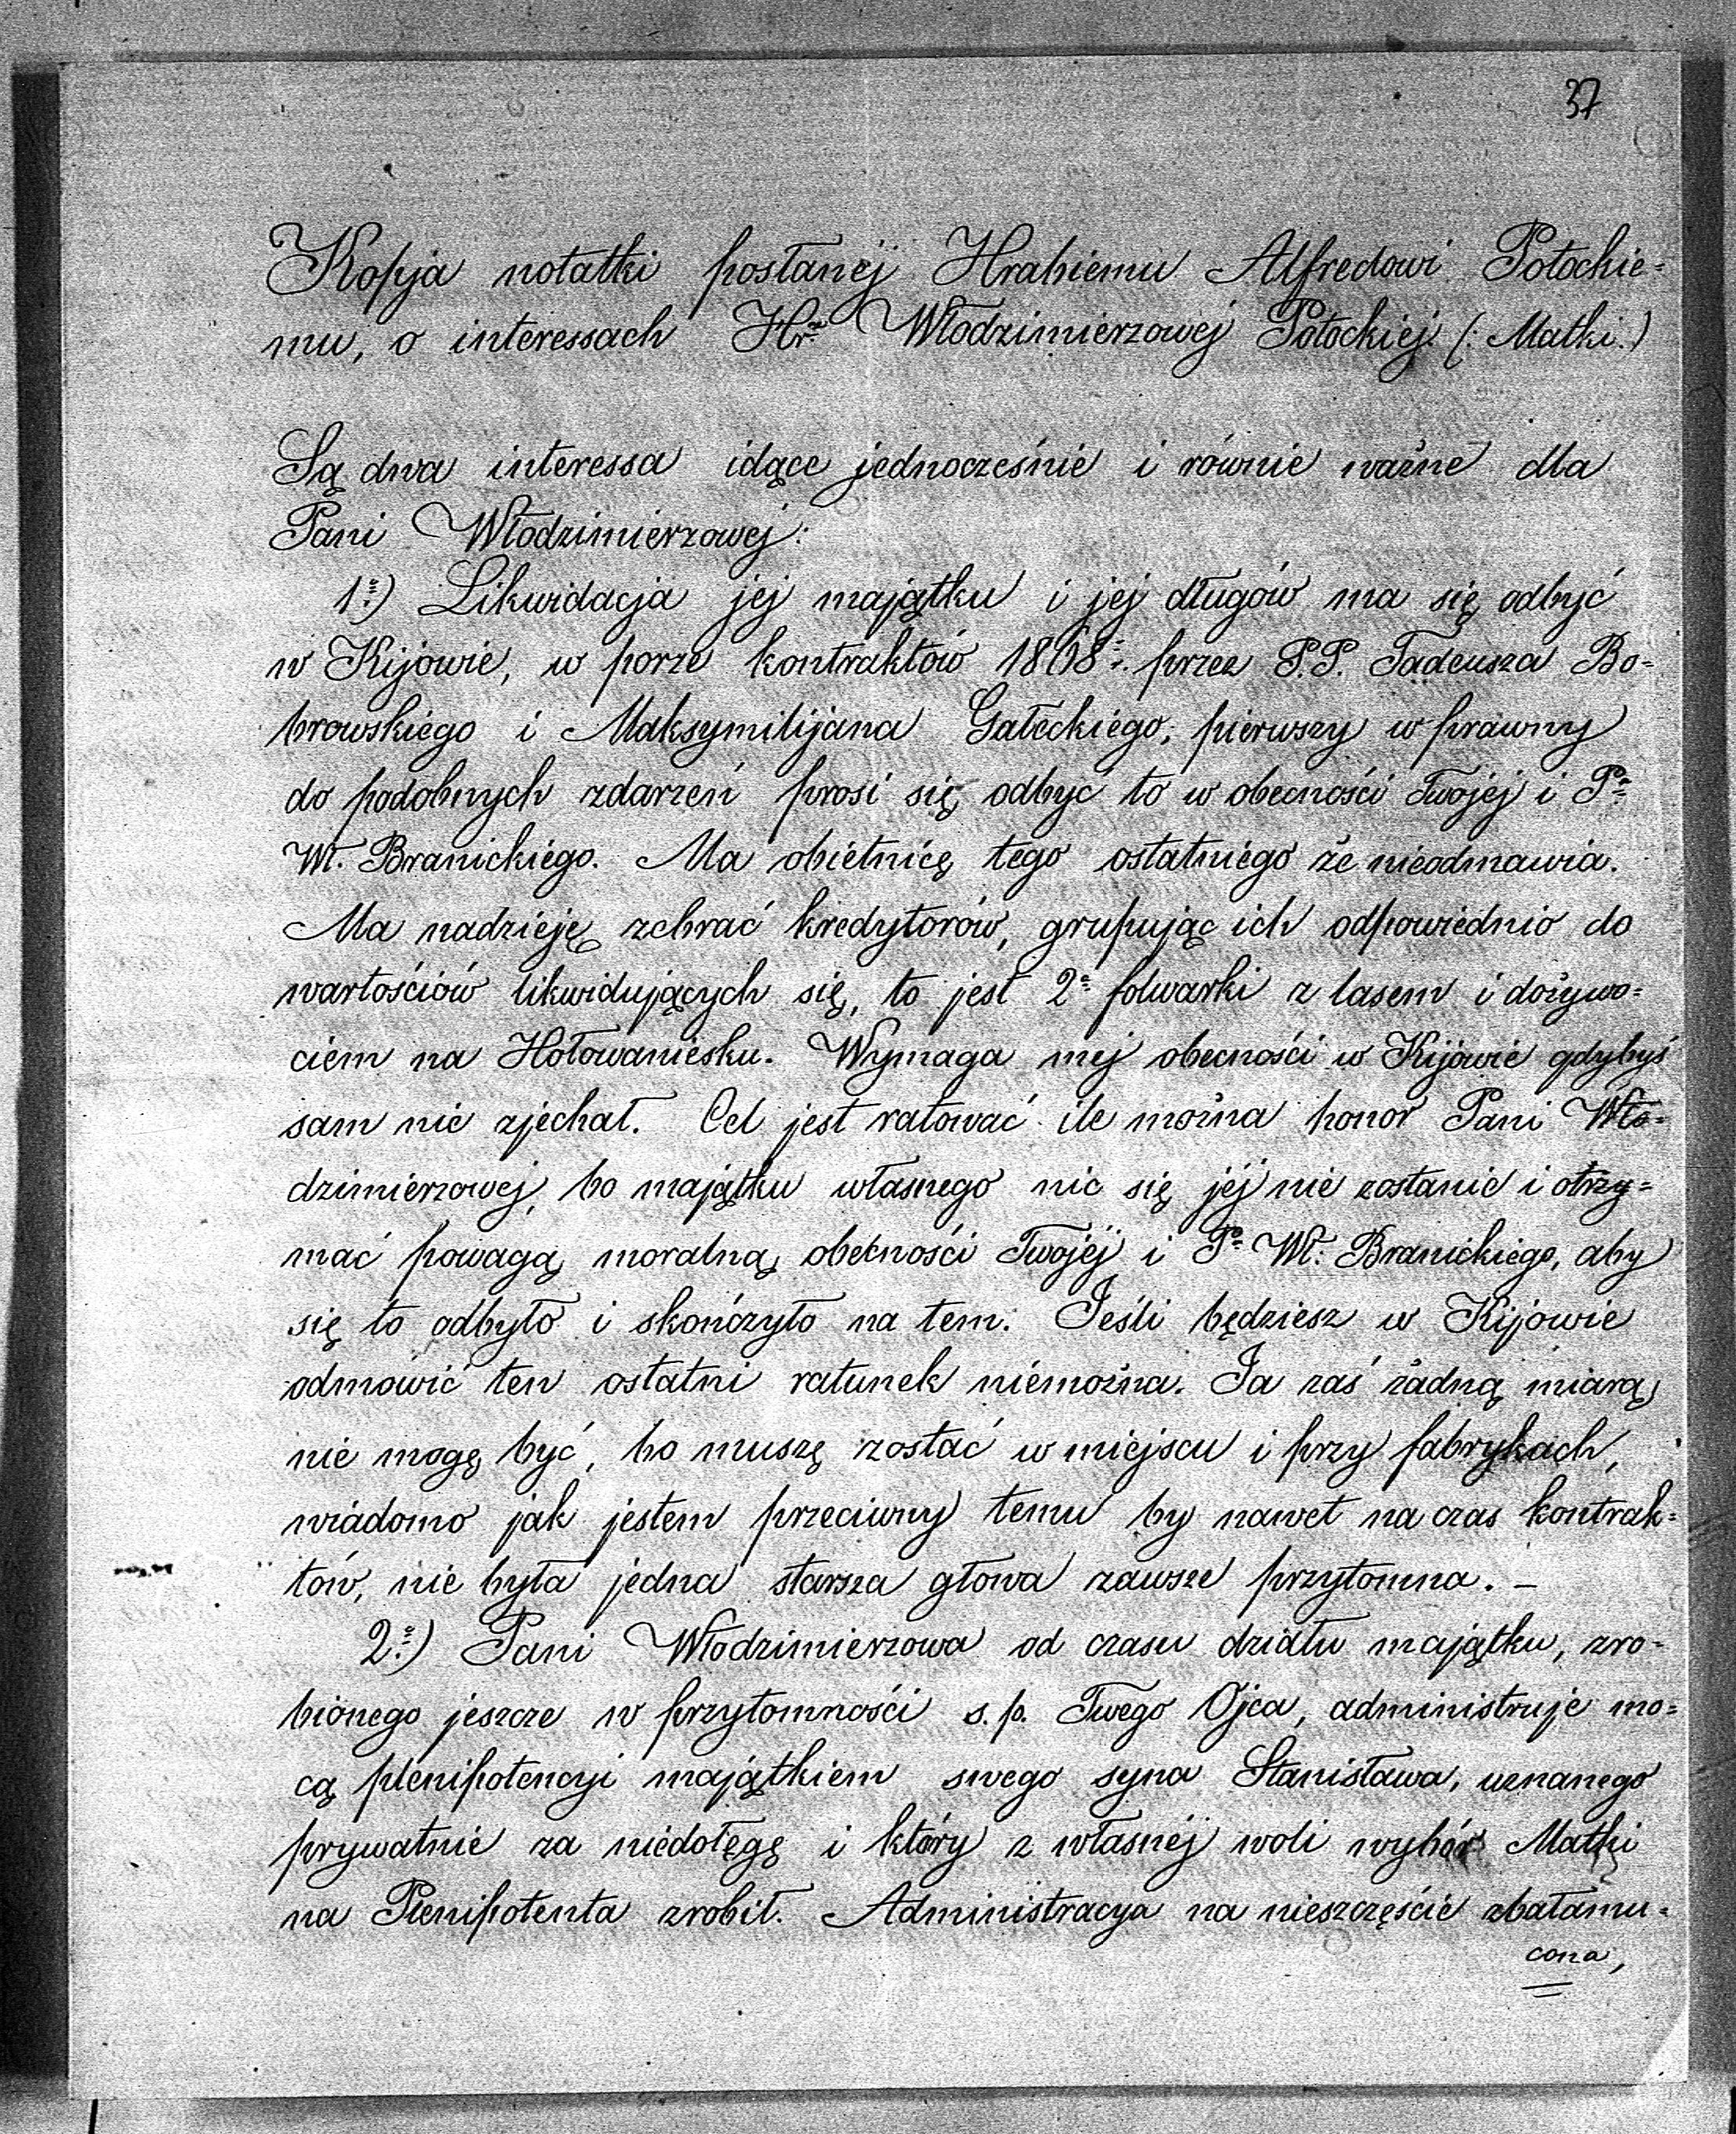 37
Kopja notatki posłanéj Hrabiemu Alfredowi Potockie=
mu, o interessach Hr: Włodzimierzowéj Potockiéj (: Matki.)
Są dwa interessa idące jednocześnie i równie ważne dla
Pani Włodzimierzowej:
1:) Likwidacja jej majątku i jej długów ma się odbyć
w Kijowie, w porze kontraktów 1868: przez P.P. Tadeusza Bo=
browskiego i Maksymilijana Gałeckiego, pierwszy wprawny
do podobnych zdarzeń prosi się odbyć to w obecności Twojéj i P:
Wł. Branickiego. Ma obietnicę tego ostatniego że nieodmawia.
Ma nadzieję zebrać kredytorów, grupując ich odpowiednio do
wartościów likwidujących się, to jest 2: folwarki z lasem i dożywo=
ciem na Hołowaniesku. Wymaga mej obecności w Kijowie gdybyś
sam nie zjechał. Cel jest ratować ile można honor Pani Wło=
dzimierzowej, bo majątku własnego nic się jéj nie zostanie i otrzy=
mać powagą moralną obecności Twojéj i P: Wł: Branickiego, aby
się to odbyło i skończyło na tem. Jeśli będziesz w Kijowie
odmówić ten ostatni ratunek niemożna. Ja zaś żadną miarą
nie mogę być, bo muszę zostać w miejscu i przy fabrykach,
wiadomo jak jestem przeciwny temu by nawet na czas kontrak=
tów, nie była jedna starsza głowa zawsze przytomna. –
2:) Pani Włodzimierzowa od czasu działu majątku, zro=
bionego jeszcze w przytomności s.p. Twego Ojca, administruje mo=
cą plenipotencyi majątkiem swego syna Stanisława, uznanego
prywatnie za niedołęgę i który z własnéj woli wybór Matki
na Plenipotenta zrobił. Administracya na nieszczęście zbałamu=
cona,